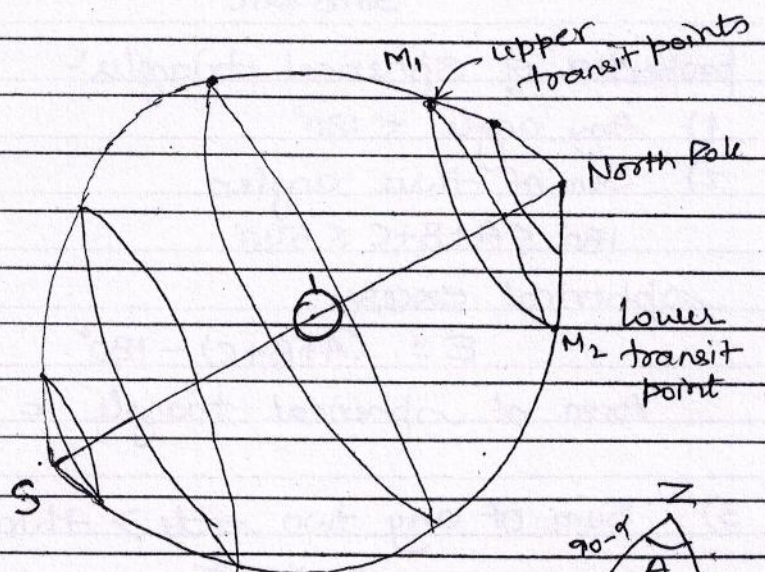 M1
upper
transit points
North Pole
M2
Lower
transit
point
S
Z
90-α
A